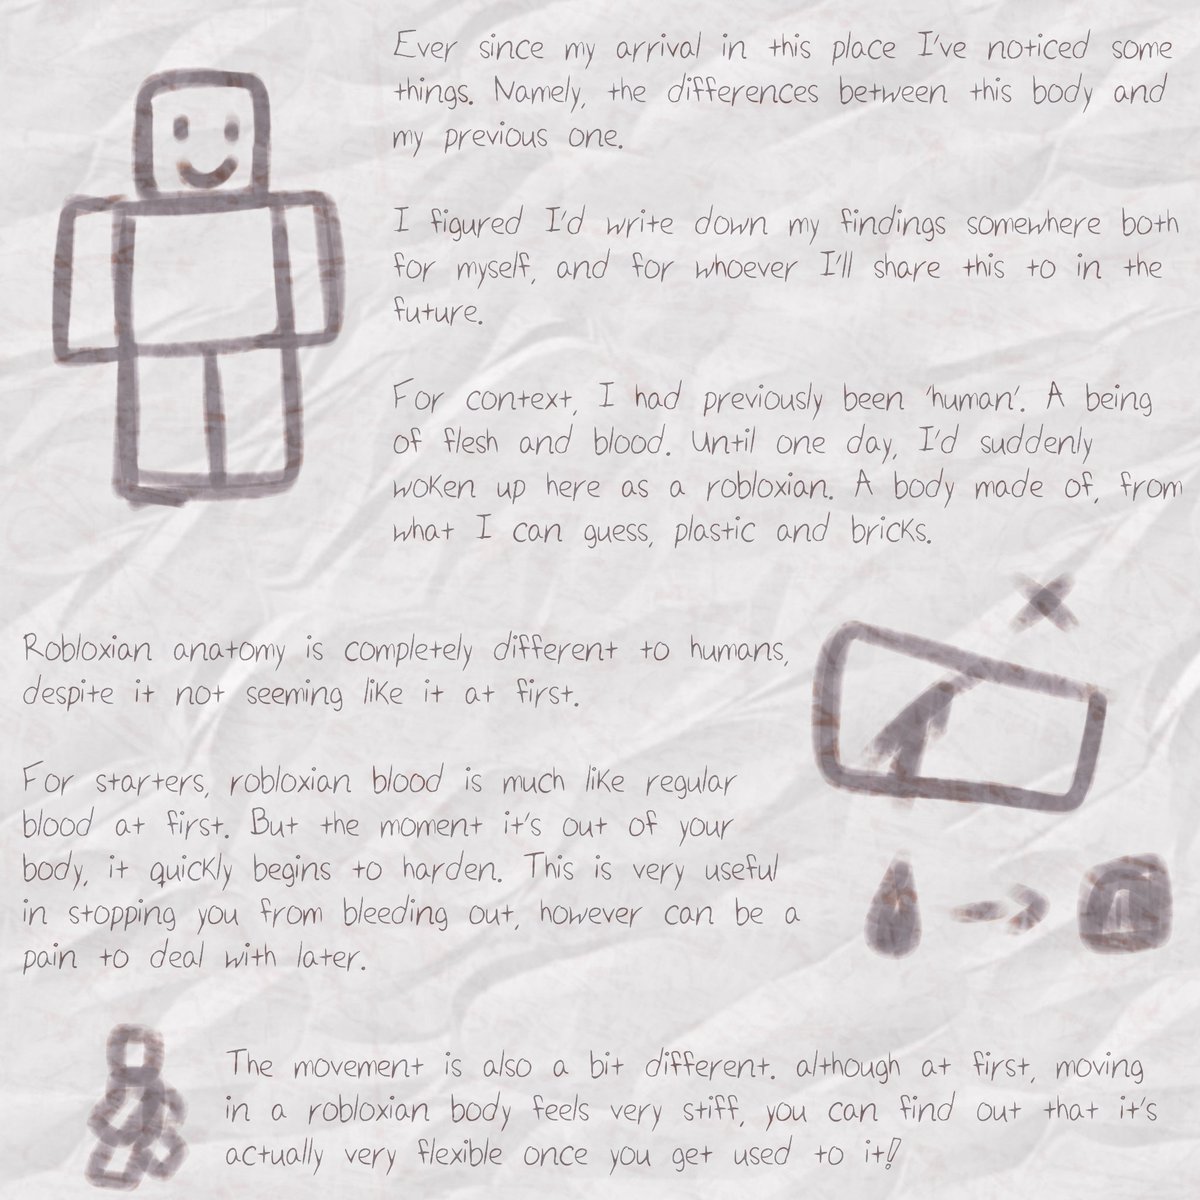 Ever since my arrival in this place I've noticed some
things. Namely, the differences between this body and
my previous one.
I figured I'd write down my findings somewhere both
for myself, and for whoever I'll share this to in the
future.
For context, I had previously been 'human'. A being
of flesh and blood. Until one day, I'd suddenly
woken up here as a robloxian. A body made of, from
what I can guess, plastic and bricks.
Robloxian anatomy is completely different to humans,
despite it not seeming like it at first.
For starters, robloxian blood is much like regular
blood at first. But the moment it's out of your
body, it quickly begins to harden. This is very useful
in stopping you from bleeding out, however can be a
pain to deal with later.
The movement is also a bit different. although at first, moving
in a robloxian body feels very stiff, you can find out that it's
actually very flexible once you get used to it!